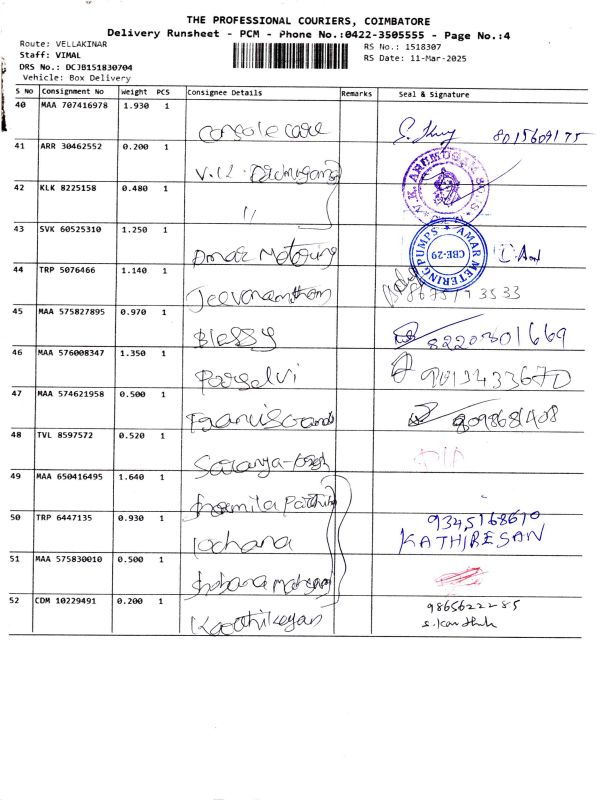 THE PROFESSIONAL COURIERS, COIMBATORE
Delivery Runsheet - PCM - Phone No.:0422-3505555 - Page No.:4
Route: VELLAKINAR
RS No.: 1518307
Staff: VIMAL
RS Date: 11-Mar-2025
DRS No.: DCJB151830704
Vehicle: Box Delivery
S No Consignment No Weight PCS Consignee Details Remarks Seal & Signature
40 MAA 707416978 1.930 1
Console care 8015609175
41 ARR 30462552 0.200 1
V.K.
42 KLK 8225158 0.480 1
"
43 SVK 60525310 1.250 1
Amar Metering
AMAR METERING PUMPS CBE-29
44 TRP 5076466 1.140 1
Jeevanantham
45 MAA 575827895 0.970 1
Blessy 8220301669
46 MAA 576008347 1.350 1
Parselvi
47 MAA 574621958 0.500 1
48 TVL 8597572 0.520 1
Saranya
49 MAA 650416495 1.640 1
Sharmila
50 TRP 6447135 0.930 1
9345168610
lochana KATHIRESAN
51 MAA 575830010 0.500 1
Shobana
52 CDM 10229491 0.200 1
9865622285
Karthikeyan